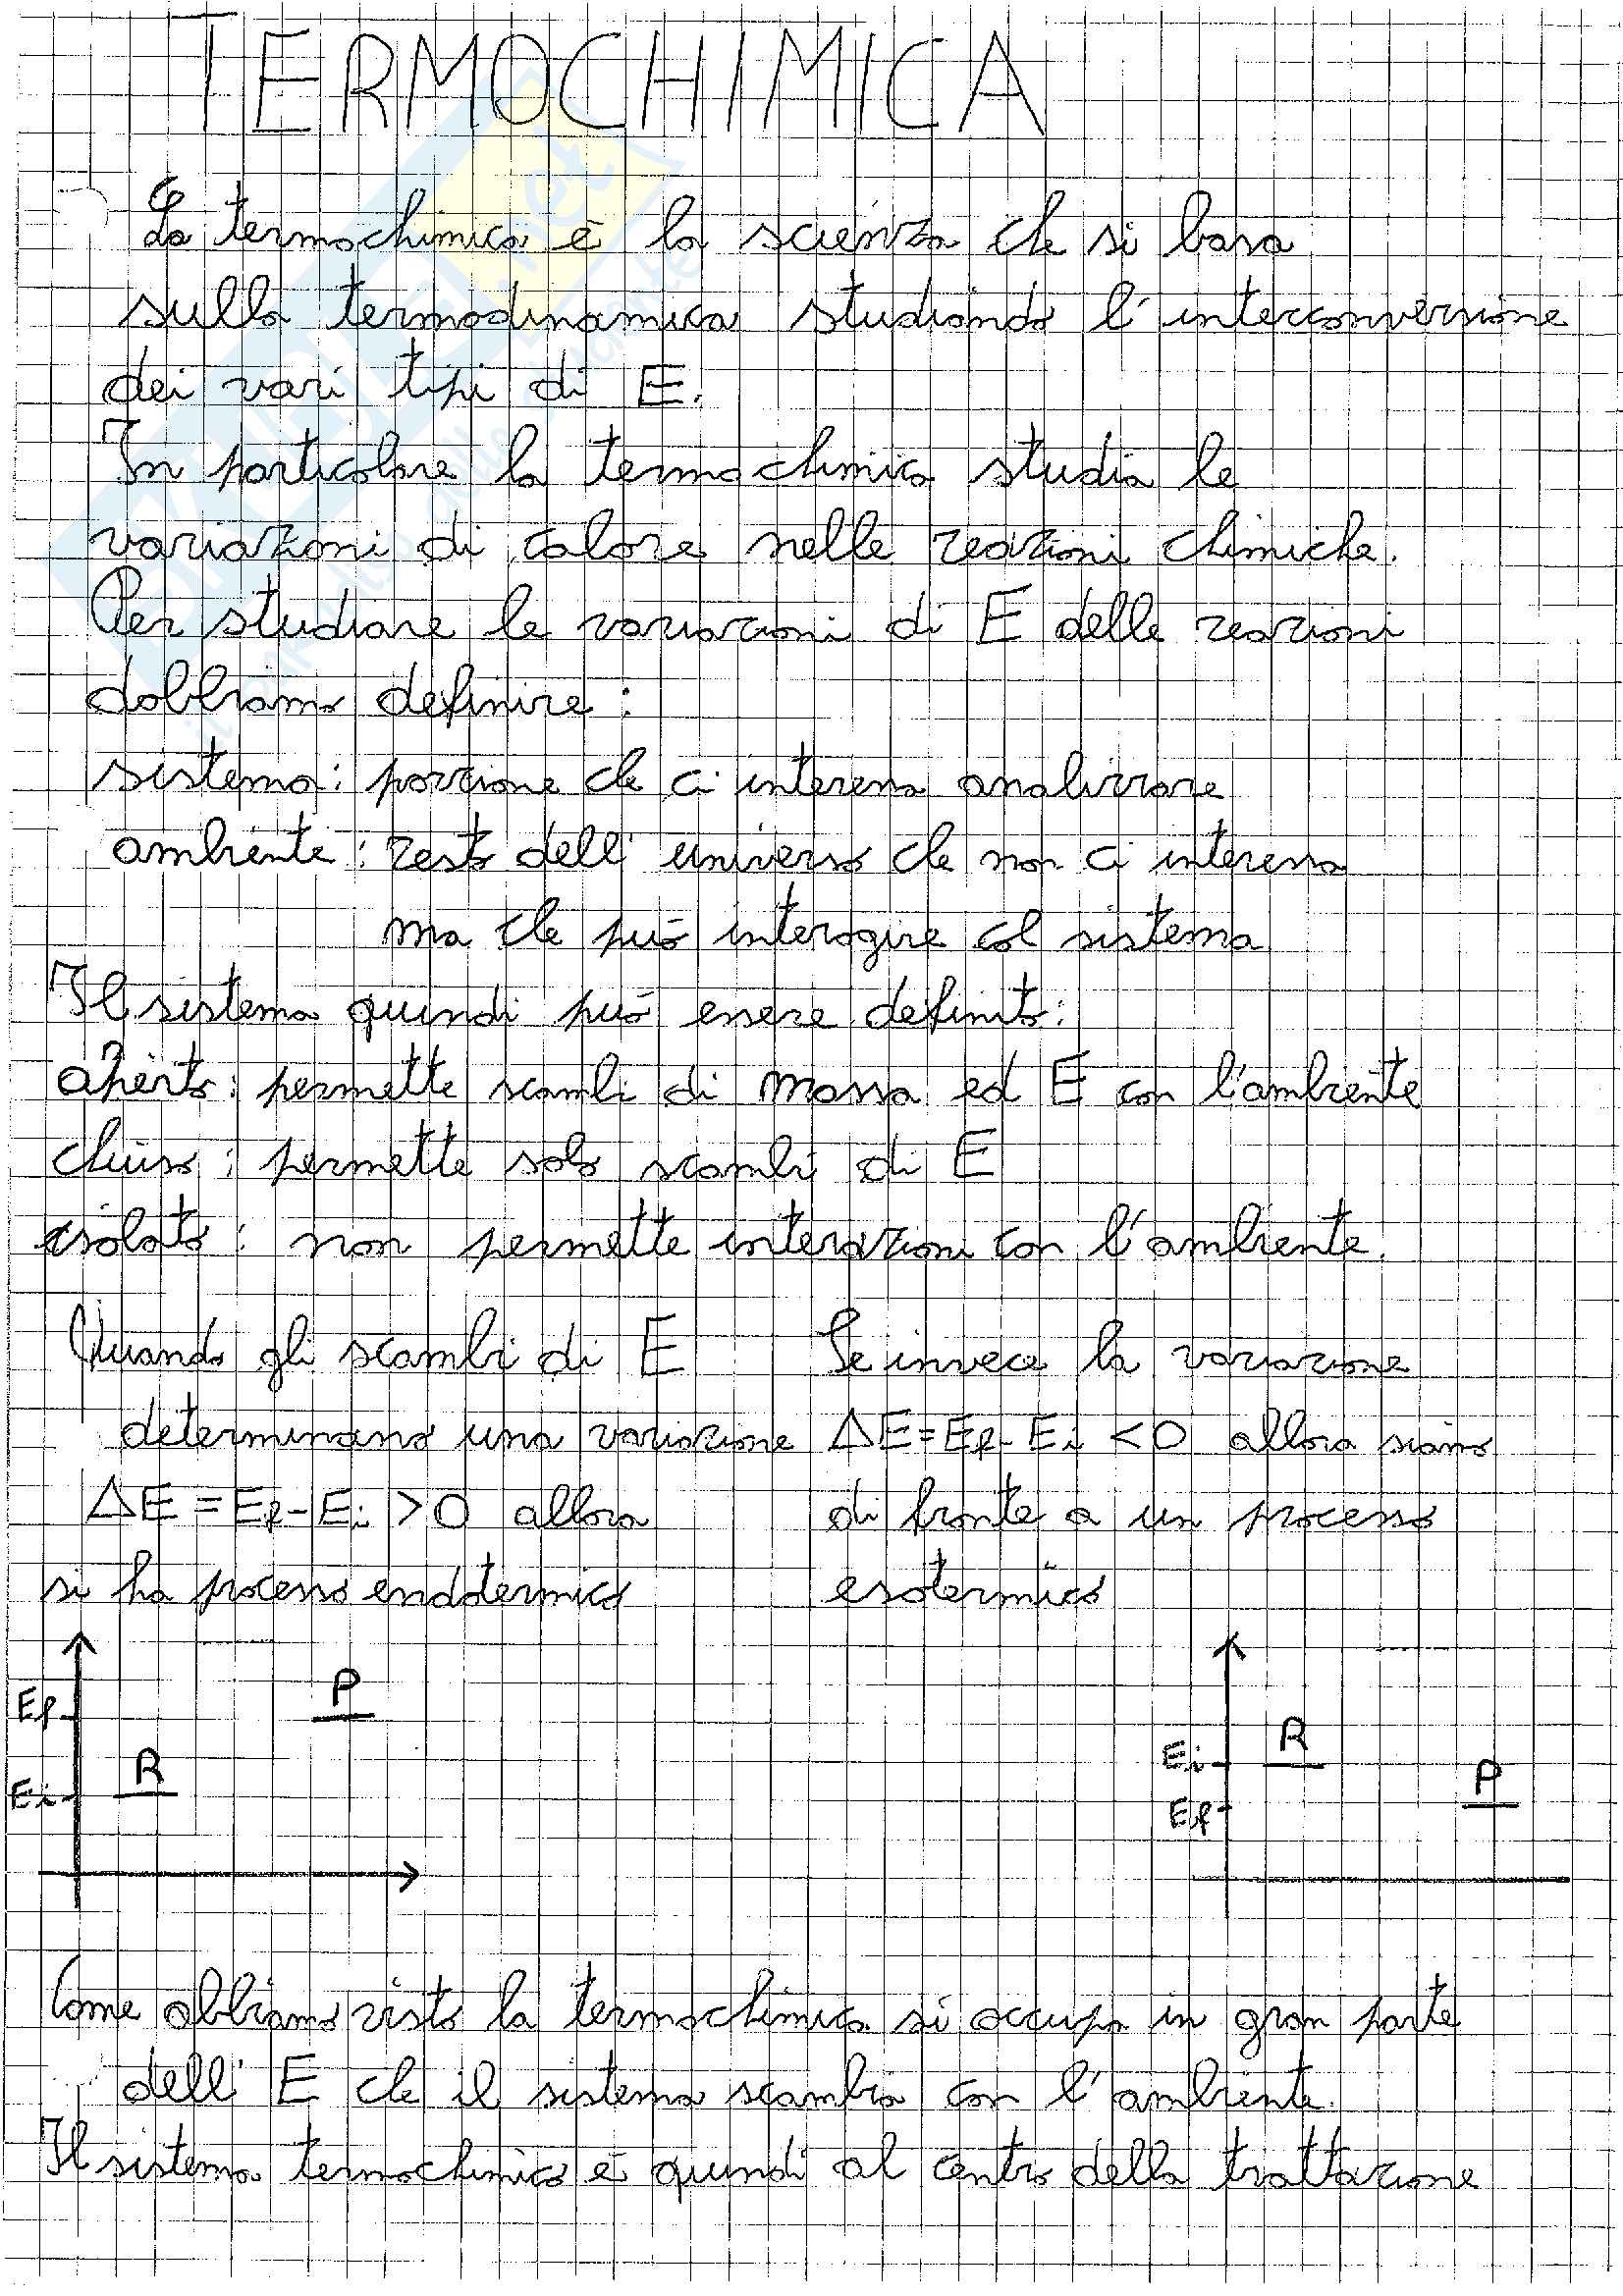 TERMOCHIMICA
La termochimica è la scienza che si basa
sulla termodinamica studiando l'interconversione
dei vari tipi di E.
In particolare la termochimica studia le
variazioni di calore nelle reazioni chimiche.
Per studiare le variazioni di E delle reazioni
dobbiamo definire:
sistema: porzione che ci interessa analizzare
ambiente: resto dell'universo che non ci interessa
ma che può interagire col sistema
Il sistema quindi può essere definito:
aperto: permette scambi di massa ed E con l'ambiente
chiuso: permette solo scambi di E
isolato: non permette interazioni con l'ambiente.
Quando gli scambi di E
determinano una variazione
ΔE = Ef - Ei > 0 allora
si ha processo endotermico
Se invece la variazione
ΔE = Ef - Ei < 0 allora siamo
di fronte a un processo
esotermico
P
Ef
R
Ei
R
Ei
P
Ef
Come abbiamo visto la termochimica si occupa in gran parte
dell'E che il sistema scambia con l'ambiente.
Il sistema termochimico è quindi al centro della trattazione